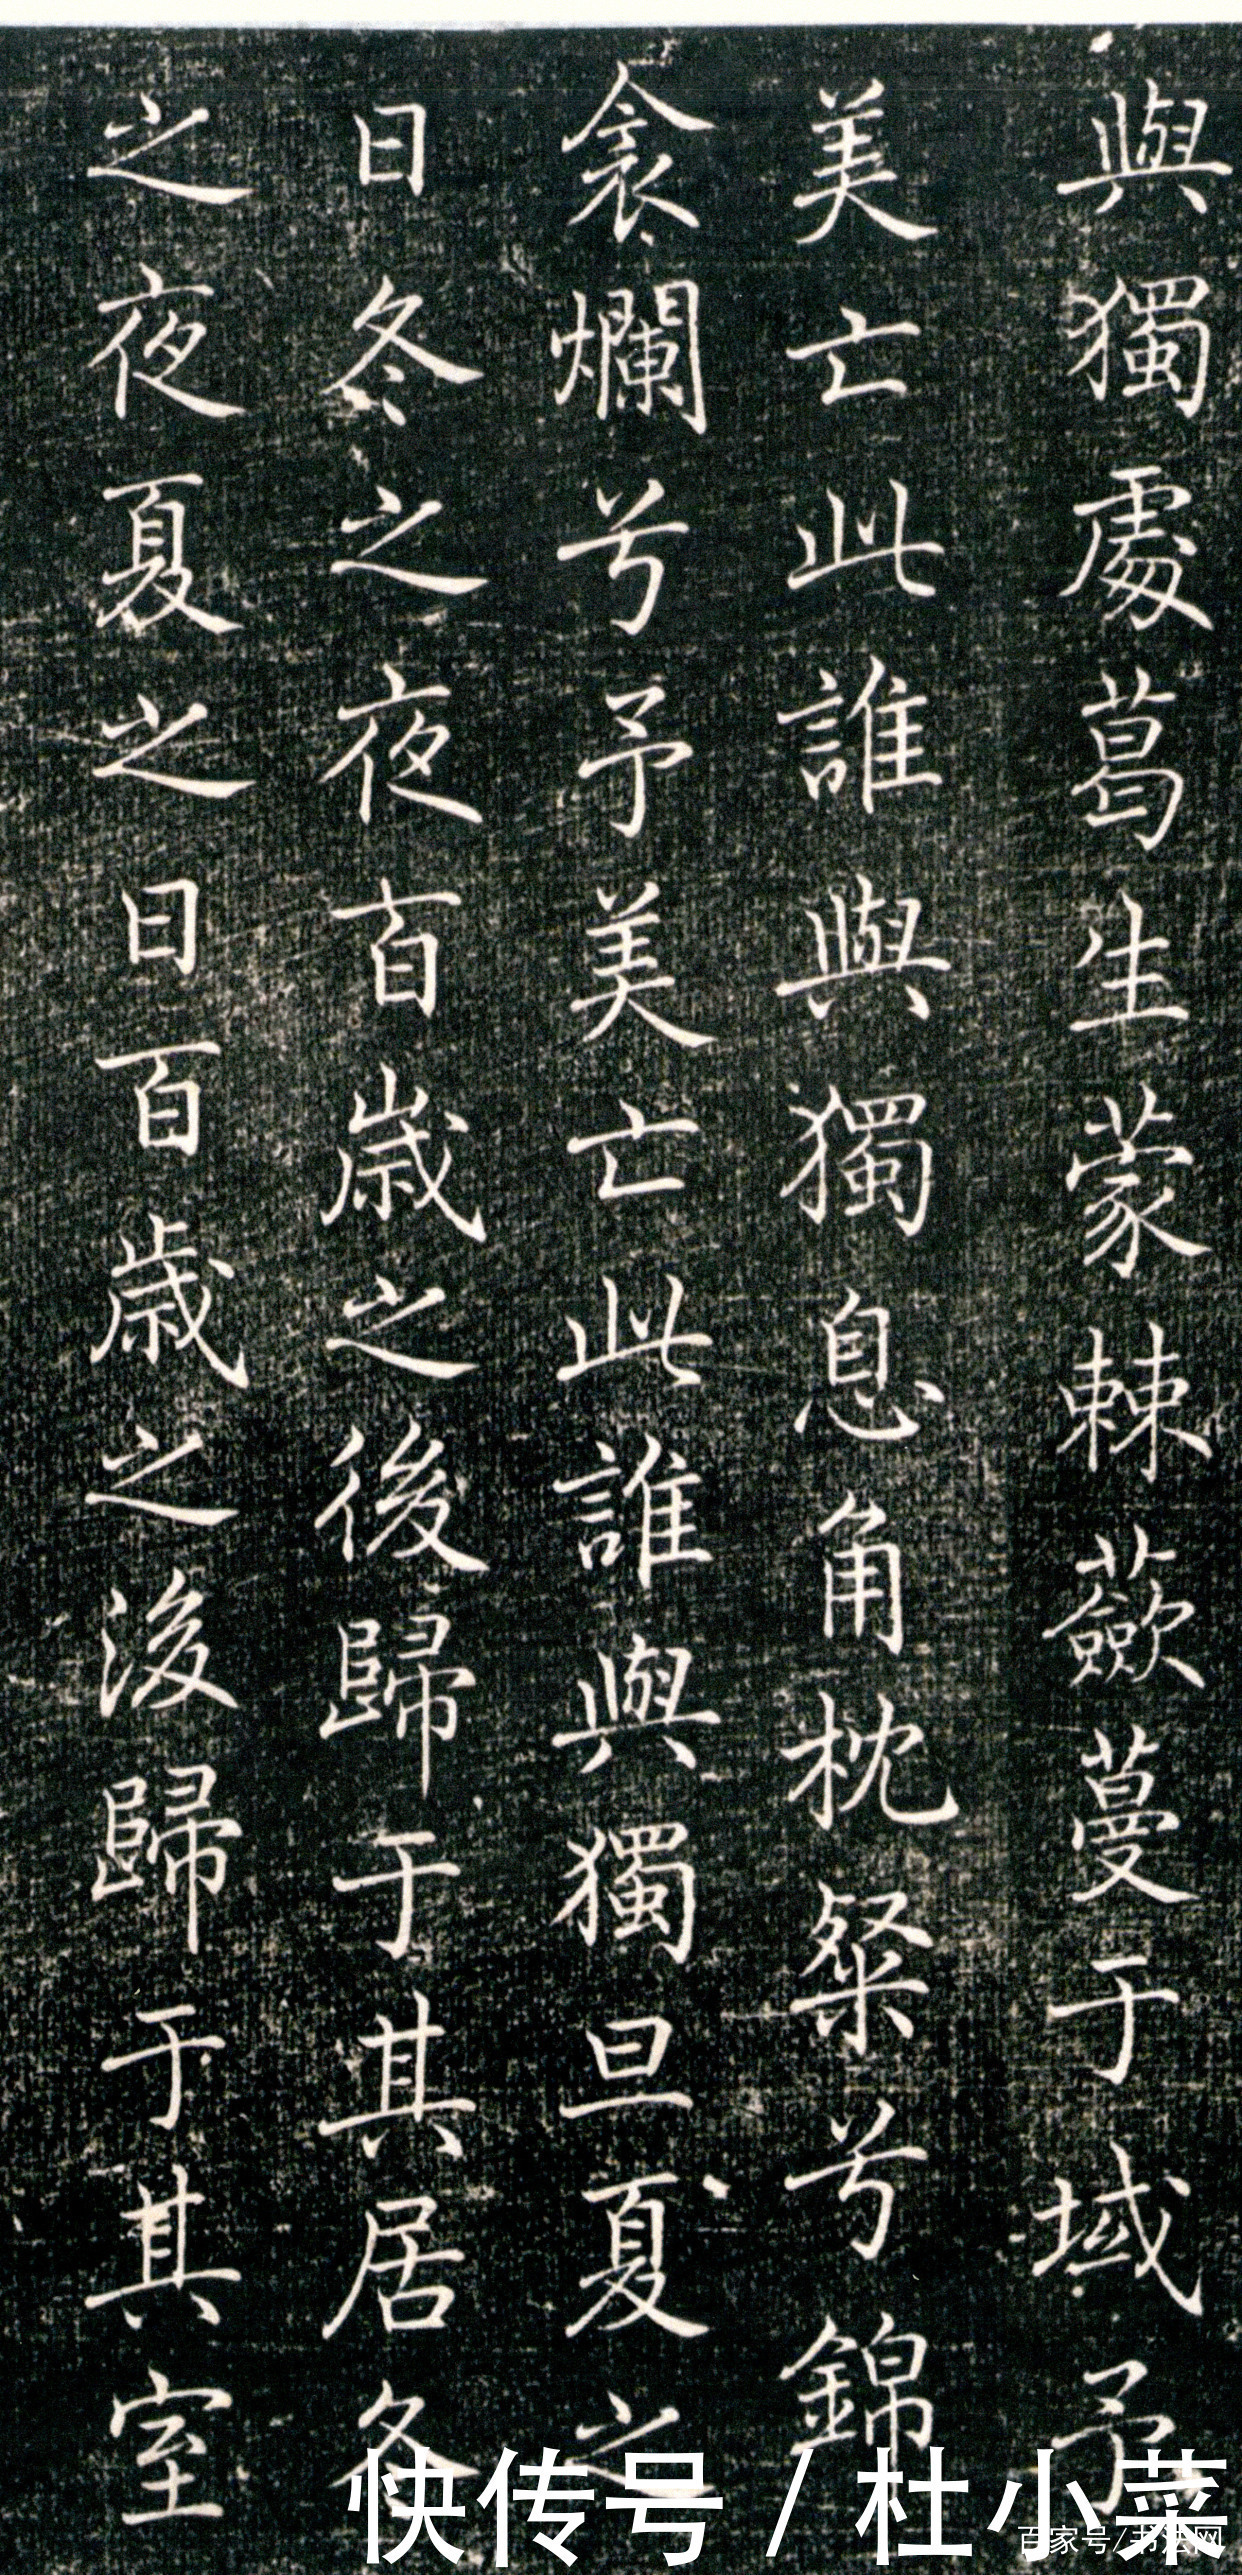 與獨處葛生蒙棘蘞蔓于域予
美亡此誰與獨息角枕粲兮錦
衾爛兮予美亡此誰與獨旦夏之
日冬之夜百歲之後歸于其居冬
之夜夏之日百歲之後歸于其室
快传号/杜小菜
百家号/书法网